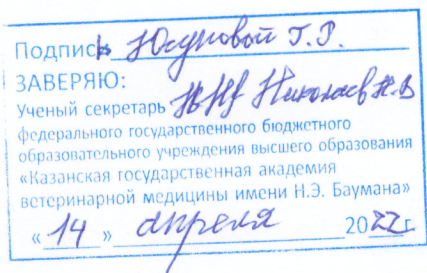 Подпись Юсуповой Г.Р.
ЗАВЕРЯЮ:
Ученый секретарь Николаев Н.В
федерального государственного бюджетного
образовательного учреждения высшего образования
«Казанская государственная академия
ветеринарной медицины имени Н.Э. Баумана»
«14» апреля 2022 г.